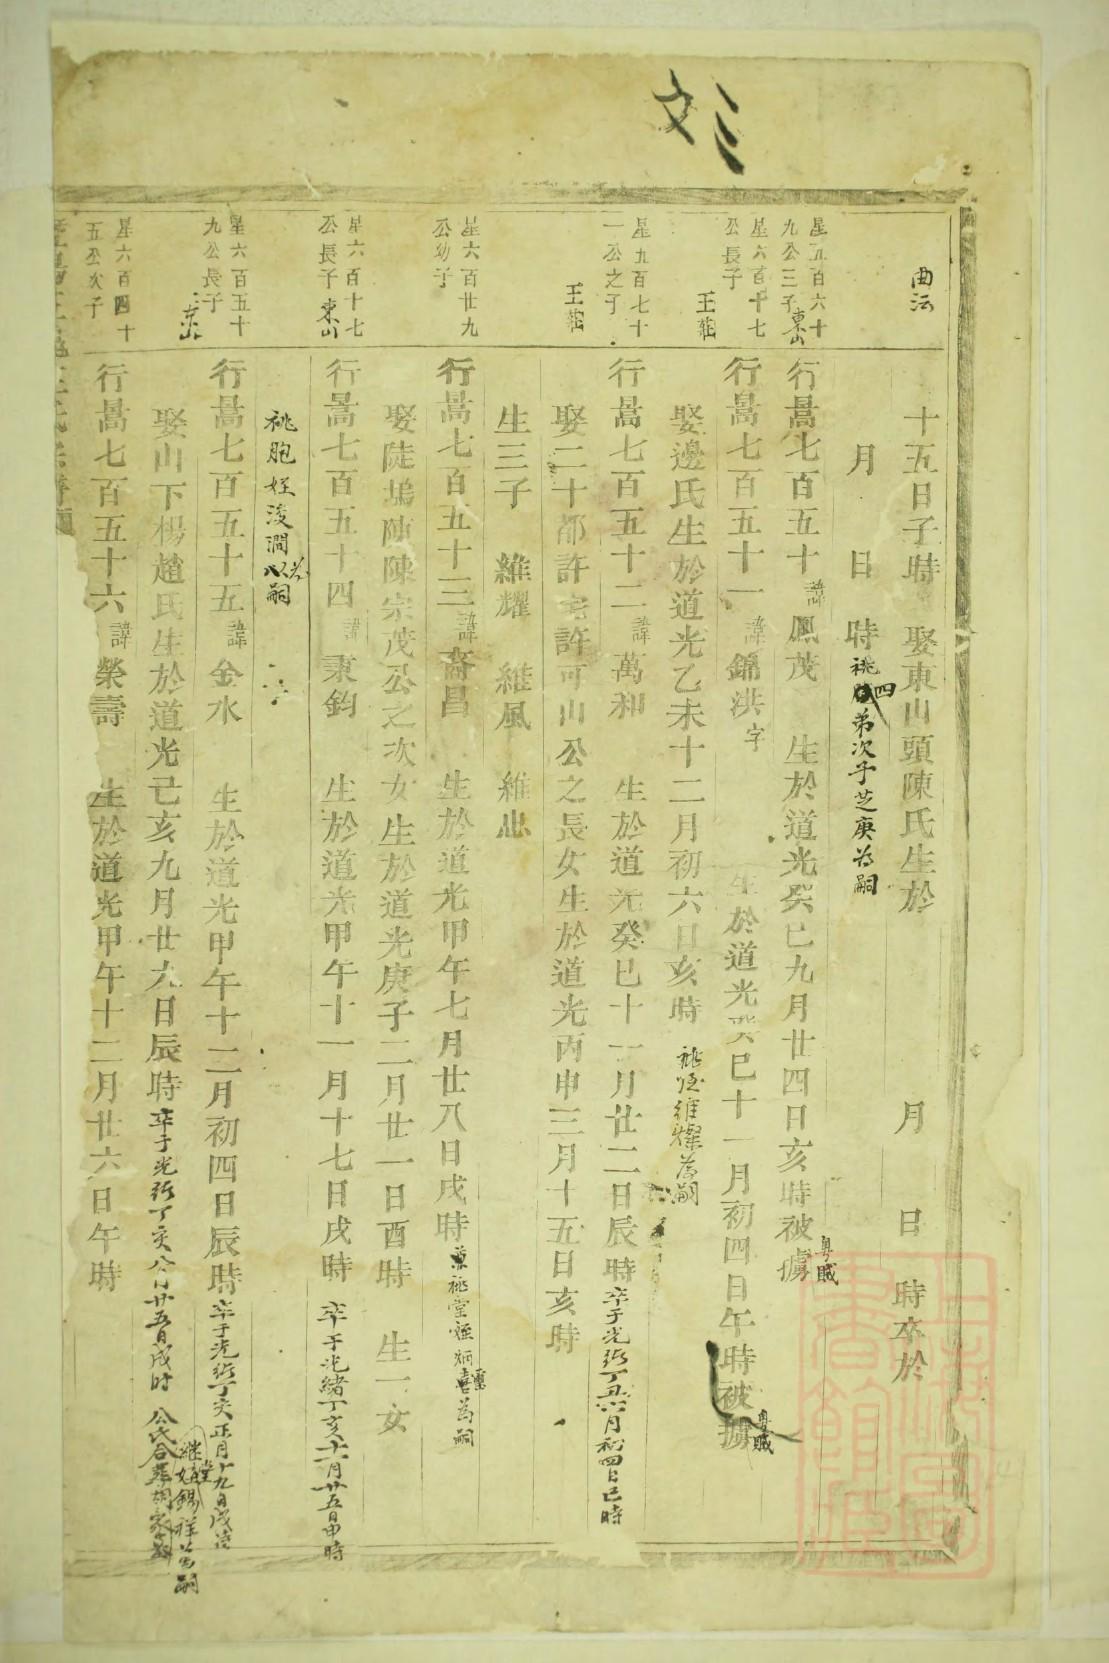 曲沄
十五日子時 娶東山頭陳氏生於 月 日 時卒於
月 日 時 祧四弟次子芝庚為嗣
星五百六十九公三子 東山
行暠七百五十 諱鳳茂 生於道光癸巳九月廿四日亥時被粵賊擄
星六百十七公長子
行暠七百五十一 諱錦洪 字 生於道光癸巳十一月初四日午時被粵賊擄
王莊
娶邊氏生於道光乙未十二月初六日亥時 祧姪維燦為嗣
星九百七十一公之子
行暠七百五十二 諱萬和 生於道光癸巳十一月廿二日辰時 卒于光緒丁丑六月初四日巳時
王莊
娶二十都許宅許可山公之長女生於道光丙申三月十五日亥時
生三子 維耀 維風 維忠
星六百廿九公幼子
行暠七百五十三 諱裔昌 生於道光甲午七月廿八日戌時 兼祧堂姪炳喜為嗣
娶陡塢陳陳宗茂公之次女生於道光庚子二月廿一日酉時 生一女
星六百十七公長子 東山
行暠七百五十四 諱秉鈞 生於道光甲午十一月十七日戌時 卒于光緒丁亥十一月廿五日申時
祧胞姪浚澗為嗣
星六百五十九公長子
行暠七百五十五 諱金水 生於道光甲午十二月初四日辰時 卒于光緒丁亥正月十九日戌時
東山
娶山下楊趙氏生於道光己亥九月廿九日辰時 卒于光緒丁亥八月廿五日戌時 公氏合葬
繼堂姪錫祥為嗣
星六百四十五公次子
行暠七百五十六 諱榮壽 生於道光甲午十二月廿六日午時